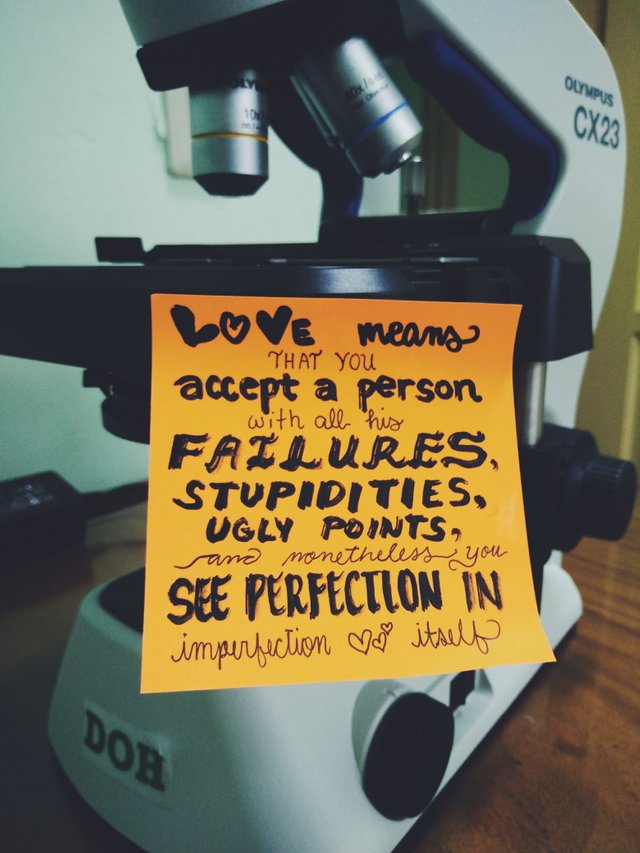 OLYMPUS
CX23
10x
LOVE means
THAT YOU
accept a person
with all his
FAILURES,
STUPIDITIES,
UGLY POINTS,
and nonetheless you
SEE PERFECTION IN
imperfection itself
DOH